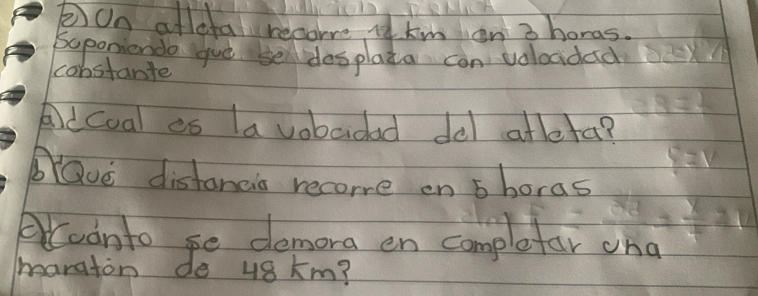 2) Un atleta recorre 12 km en 3 horas.
Soponiendo que se desplaza con velocidad
constante
A) ¿Cual es la velocidad del atleta?
b) Qué distancia recorre en 5 horas
c) Cuánto se demora en completar una
maratón de 48 km?